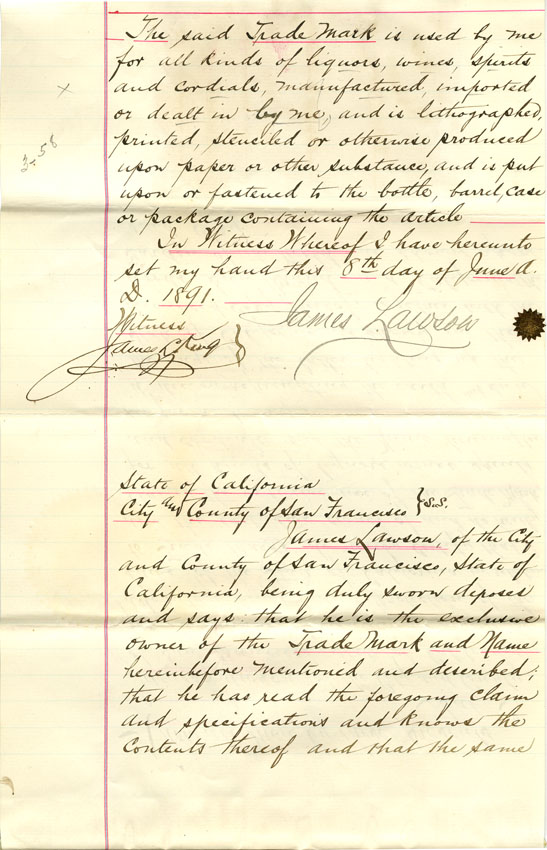 The said Trade Mark is used by me
for all kinds of liquors, wines, spirits
and cordials, manufactured, imported
or dealt in by me, and is lithographed,
printed, stenciled or otherwise produced
upon paper or other substance, and is put
upon or fastened to the bottle, barrel, case
or package containing the article
In Witness Whereof I have hereunto
set my hand this 8th day of June A.
D. 1891.
James Lawson
Witness
James L. King
State of California
City and County of San Francisco } S.S.
James Lawson, of the City
and County of San Francisco, State of
California, being duly sworn deposes
and says: that he is the exclusive
owner of the Trade Mark and Name
hereinbefore mentioned and described;
that he has read the foregoing claim
and specifications and knows the
contents thereof and that the same